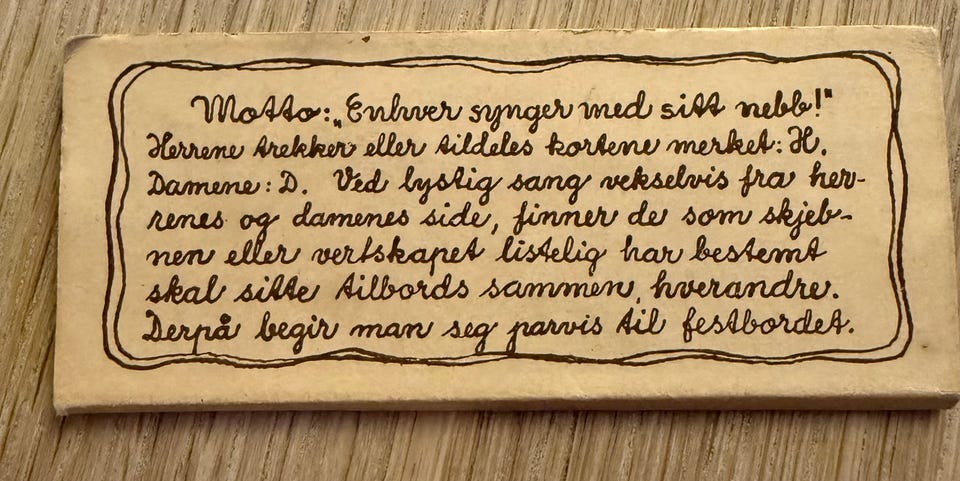 Motto: „Enhver synger med sitt nebb!"
Herrene trekker eller tildeles kortene merket: H.
Damene: D. Ved lystig sang vekselvis fra her-
renes og damenes side, finner de som skjeb-
nen eller vertskapet listelig har bestemt
skal sitte tilbords sammen, hverandre.
Derpå begir man seg parvis til festbordet.